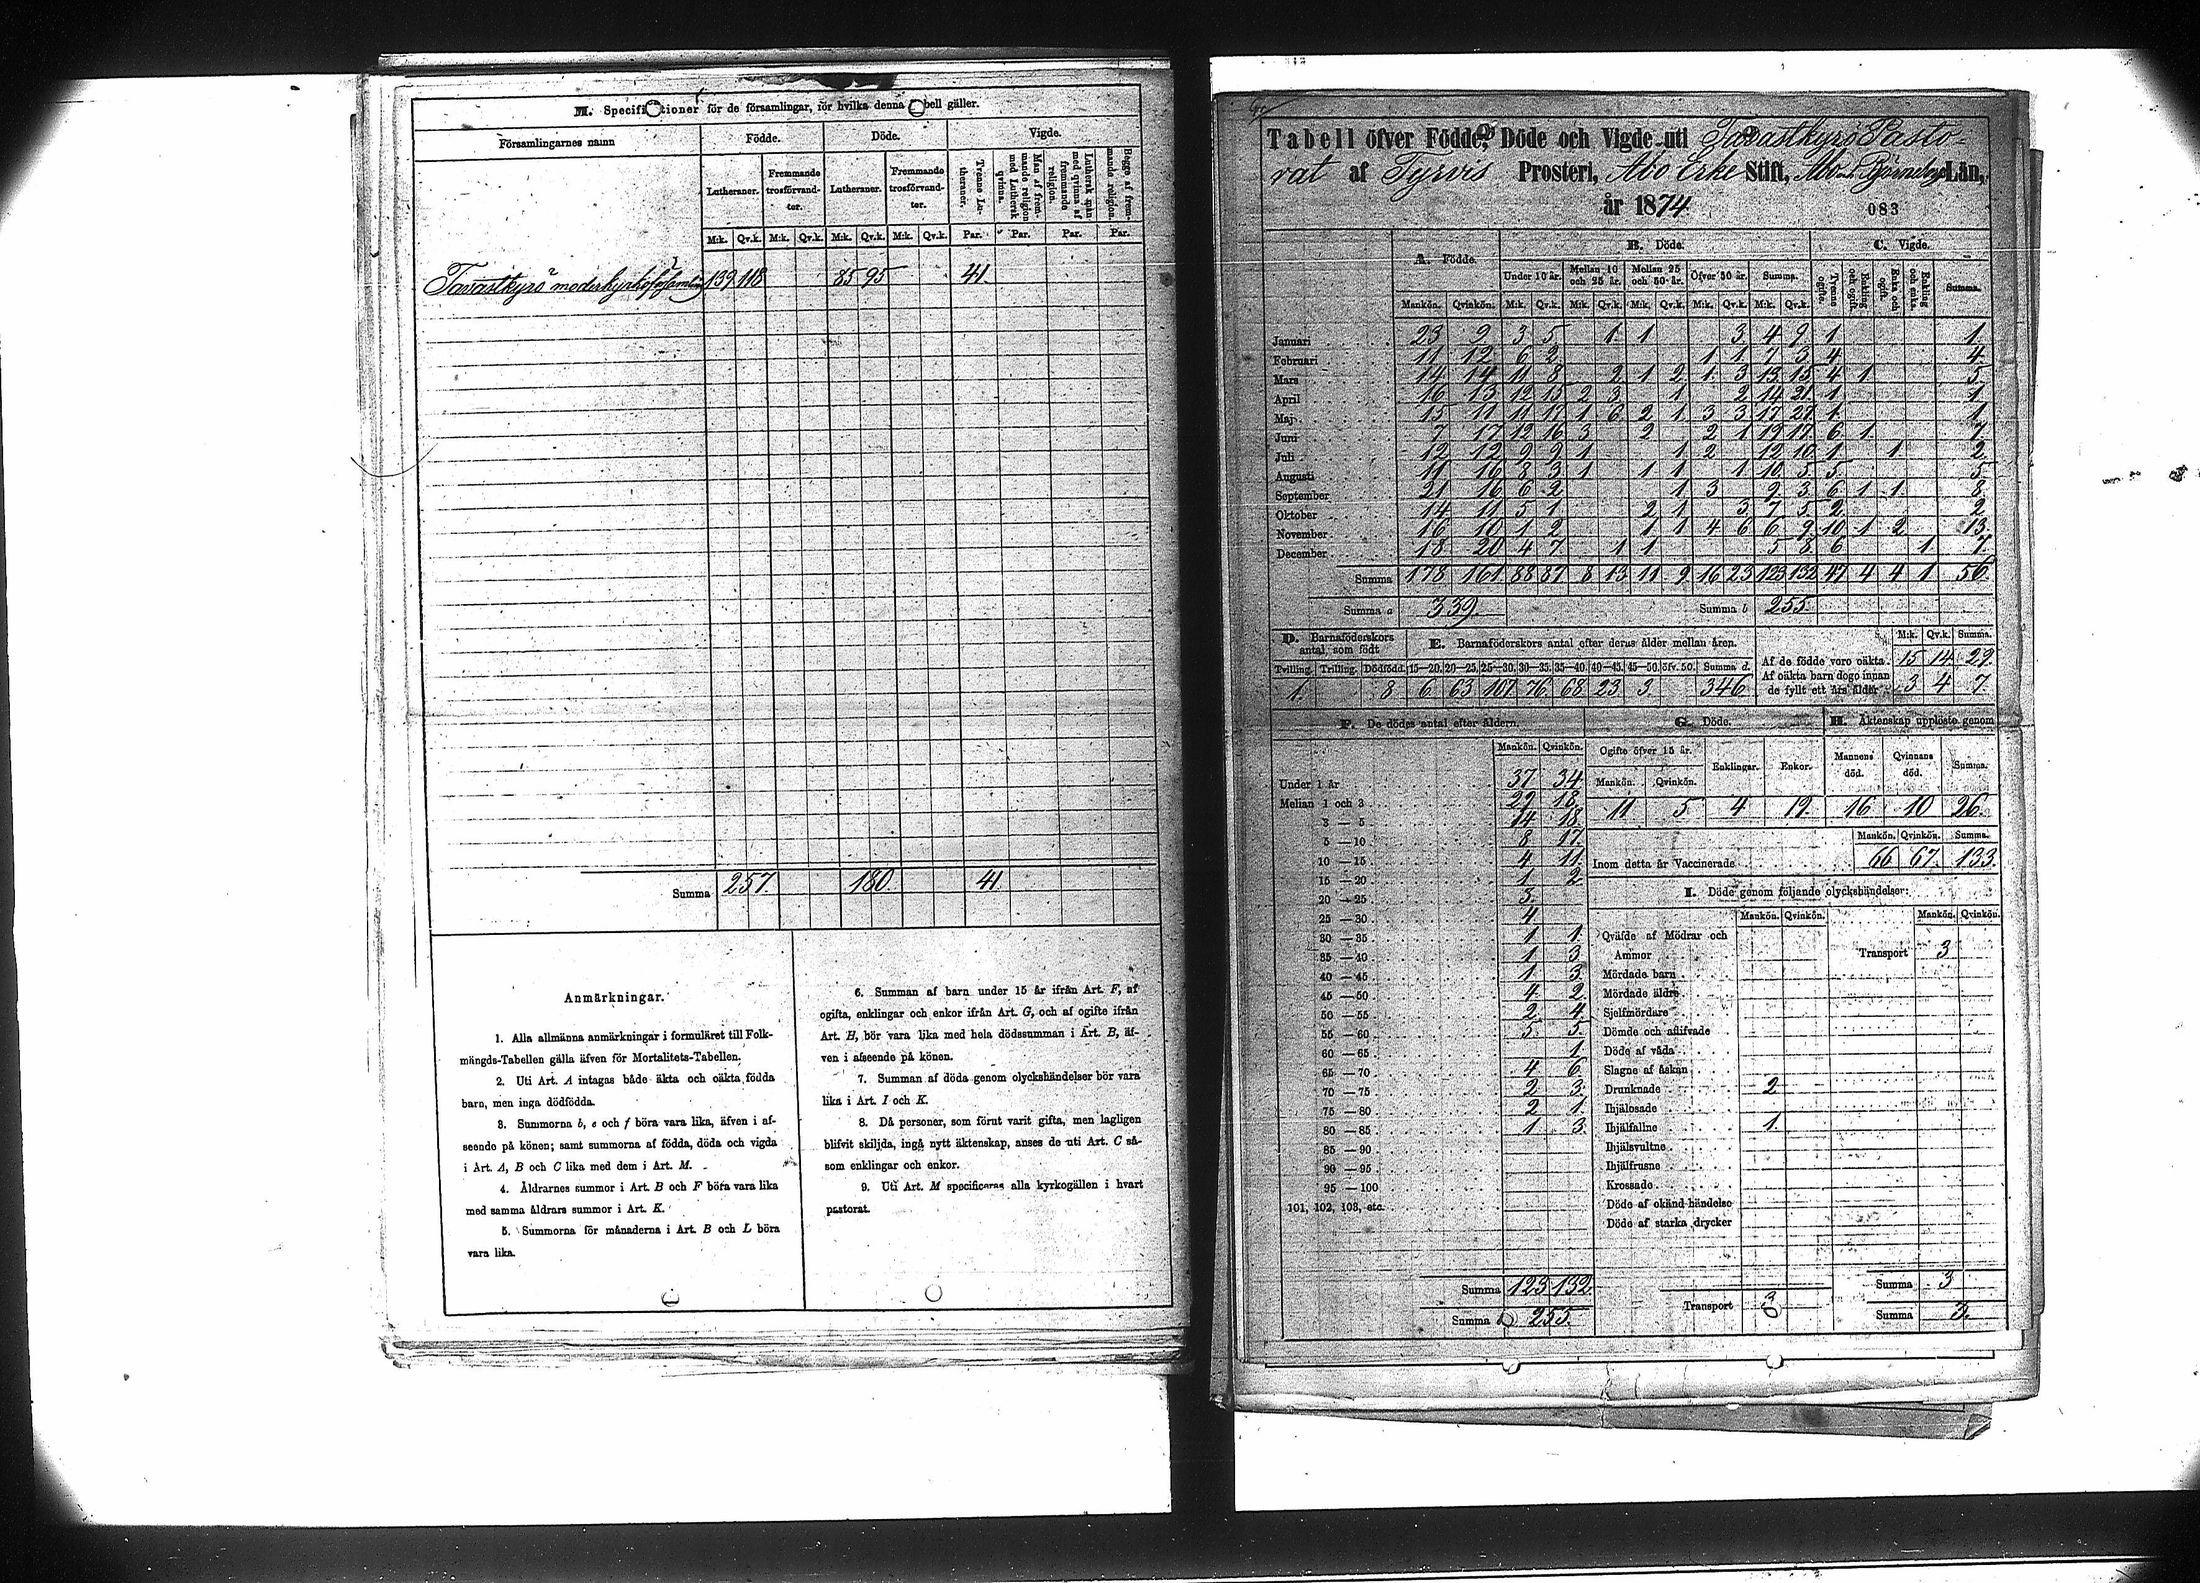 M. Specifikationer för de församlingar, för hvilka denna Tabell gäller.
Församlingarnes namn
Födde.
Döde.
Vigde.
Lutheraner.
Fremmande trosförvandter.
Lutheraner.
Fremmande trosförvandter.
Tvenne Lutheraner.
Man af fremmande religion med Luthersk qvinna.
Luthersk man med qvinna af fremmande religion.
Begge af fremmande religion.
M:k. Qv.k. M:k. Qv.k. M:k. Qv.k. M:k. Qv.k. Par. Par. Par. Par.
Tavastkyrö 139 118 85 95 41
Summa 257 180 41
Anmärkningar.
1. Alla allmänna anmärkningar i formuläret till Folk-
mängds-Tabellen gälla äfven för Mortalitets-Tabellen.
2. Uti Art. A intagas både äkta och oäkta födda
barn, men inga dödfödda.
3. Summorna b, e och f böra vara lika, äfven i af-
seende på könen; samt summorna af födda, döda och vigda
i Art. A, B och C lika med dem i Art. M.
4. Åldrarnes summor i Art. B och F böra vara lika
med samma åldrars summor i Art. K.
5. Summorna för månaderna i Art. B och L böra
vara lika.
6. Summan af barn under 15 år ifrån Art. F, af
ogifta, enklingar och enkor ifrån Art. G, och af ogifte ifrån
Art. H, bör vara lika med hela dödssumman i Art. B, äf-
ven i afseende på könen.
7. Summan af döda genom olyckshändelser bör vara
lika i Art. I och K.
8. Då personer, som förut varit gifta, men lagligen
blifvit skiljda, ingå nytt äktenskap, anses de uti Art. C så-
som enklingar och enkor.
9. Uti Art. M specificeras alla kyrkogällen i hvart
pastorat.
Tabell öfver Födde, Döde och Vigde uti Tavastkyrö Pasto-
rat af Tyrvis Prosteri, Åbo Erke Stift, Åbo Björneborgs Län,
år 1874
083
A. Födde.
B. Döde.
C. Vigde.
Under 10 år. Mellan 10 och 25 år. Mellan 25 och 50 år. Öfver 50 år. Summa.
Tvenne ogifte. Enkling och ogift. Enka och ogift. Enkling och enka. Summa.
Mankön. Qvinkön. M:k. Qv.k. M:k. Qv.k. M:k. Qv.k. M:k. Qv.k. M:k. Qv.k.
Januari 23 9 3 5 1 1 3 4 9 1 1
Februari 11 12 6 2 1 1 7 3 4 4
Mars 14 14 11 8 2 1 2 1 3 13 15 4 1 5
April 16 13 12 15 2 3 1 2 14 21 1 1
Maj 15 11 11 17 1 6 2 1 3 3 17 27 1 1
Juni 7 17 12 16 3 2 2 1 19 17 6 1 7
Juli 12 12 9 9 1 1 2 12 10 1 1 2
Augusti 11 16 8 3 1 1 1 1 10 5 5 5
September 21 16 6 2 1 3 9 3 6 1 1 8
Oktober 14 11 5 1 2 1 3 7 5 2 2
November 16 10 1 2 1 1 4 6 6 9 10 1 2 13
December 18 20 4 7 1 1 5 8 6 1 7
Summa 178 161 88 87 8 13 11 9 16 23 123 132 47 4 4 1 56
Summa a 339
Summa b 255
D. Barnaföderskors antal, som födt
E. Barnaföderskors antal efter deras ålder mellan åren.
Tvilling. Trilling. Dödfödd. 15—20. 20—25. 25—30. 30—35. 35—40. 40—45. 45—50. öfv. 50. Summa d.
1 8 6 63 107 76 68 23 3 346
M:k. Qv.k. Summa.
Af de födde voro oäkta 15 14 29
Af oäkta barn dogo innan
de fyllt ett års ålder 3 4 7
F. De dödes antal efter åldern.
Mankön. Qvinkön.
Under 1 år 37 34
Mellan 1 och 3 29 18
3 — 5 14 18
5 — 10 8 17
10 — 15 4 11
15 — 20 1 2
20 — 25 3
25 — 30 4
30 — 35 1 1
35 — 40 1 3
40 — 45 1 3
45 — 50 4 2
50 — 55 2 4
55 — 60 5 5
60 — 65 1
65 — 70 4 6
70 — 75 2 3
75 — 80 2 1
80 — 85 1 3
85 — 90
90 — 95
95 — 100
101, 102, 103, etc.
Summa 123 132
Summa 255
G. Döde.
Ogifte öfver 15 år. Enklingar. Enkor.
Mankön. Qvinkön.
11 5 4 19
H. Äktenskap upplöste genom
Mannens död. Qvinnans död. Summa.
16 10 26
Mankön. Qvinkön. Summa.
Inom detta år Vaccinerade 66 67 133
I. Döde genom följande olyckshändelser:
Mankön. Qvinkön. Mankön. Qvinkön.
Qväfde af Mödrar och
Ammor
Mördade barn
Mördade äldre
Sjelfmördare
Dömde och aflifvade
Döde af våda
Slagne af åskan
Drunknade 2
Ihjälosade
Ihjälfallne 1
Ihjälsvultne
Ihjälfrusne
Krossade
Döde af okänd händelse
Döde af starka drycker
Transport 3
Transport 3
Summa 3
Summa 3